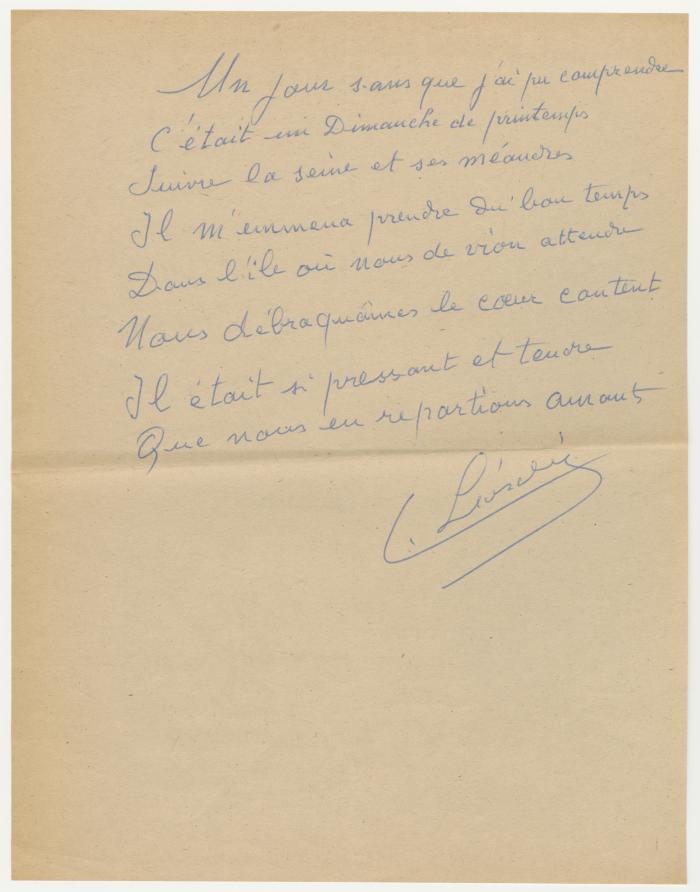 Un jour sans que j'ai pu comprendre
C'était un Dimanche de printemps
Suivre la seine et ses méandres
Il m'emmena prendre du bon temps
Dans l'île où nous de vion attendre
Nous débraquâmes le cœur content
Il était si pressant et tendre
Que nous en repartions amants